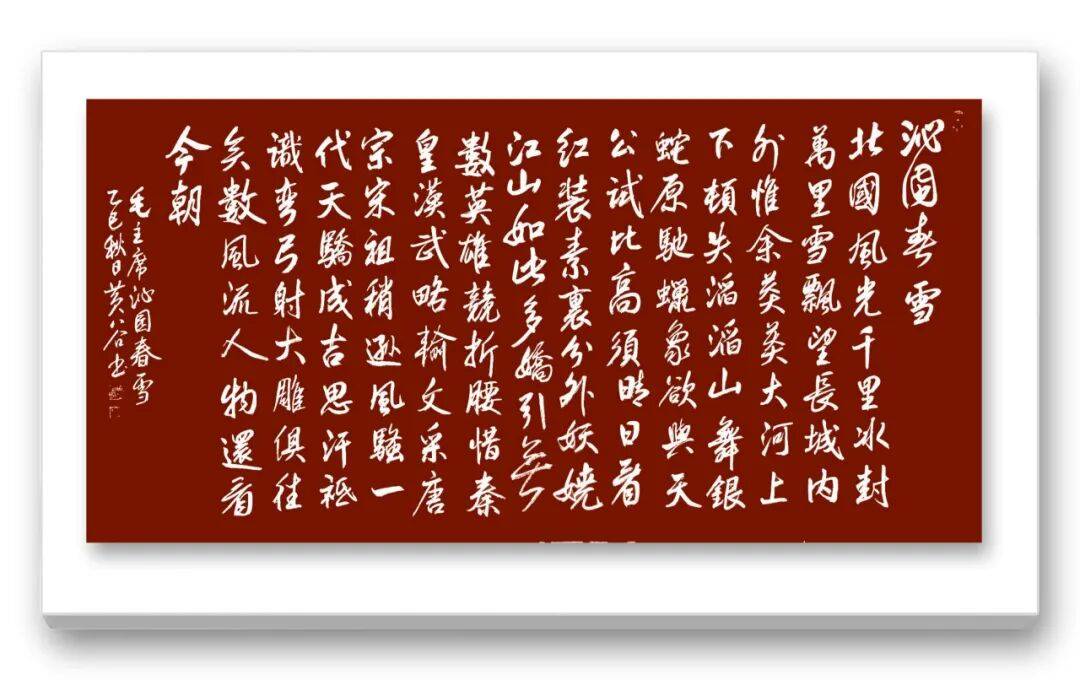 沁園春雪
北國風光千里冰封
萬里雪飄望長城内
外惟余莽莽大河上
下頓失滔滔山舞銀
蛇原馳蠟象欲與天
公試比高須晴日看
红装素裹分外妖嬈
江山如此多嬌引無
數英雄競折腰惜秦
皇漢武略輸文采唐
宗宋祖稍遜風騷一
代天驕成吉思汗祗
識彎弓射大雕俱往
矣數風流人物還看
今朝
毛主席沁園春雪
乙巳秋日黄谷书